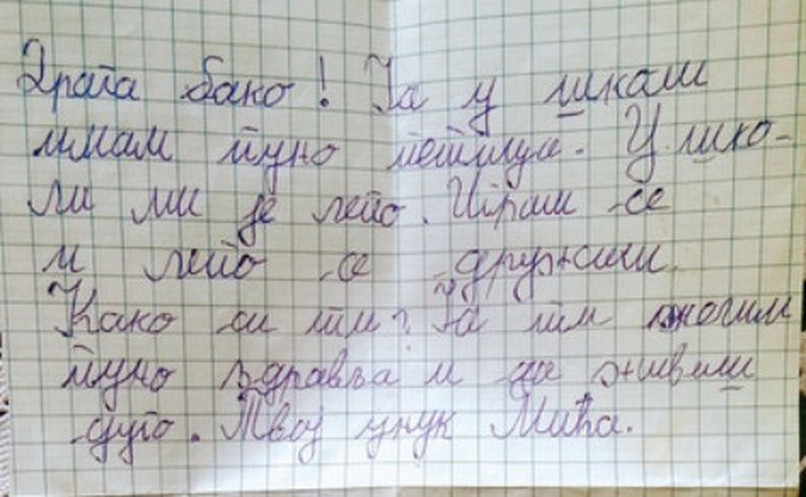 Драга бако! Ја у школи
имам пуно петица. У шко-
ли ми је лепо. Играм се
и лепо се дружим.
Како си ти? Ја ти желим
пуно здравља и да живиш
дуго. Твој унук Мића.